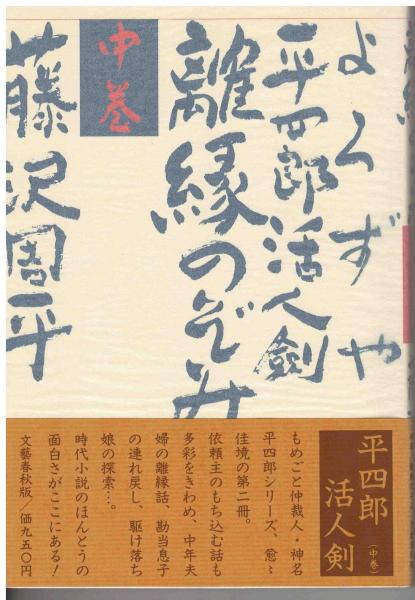 よろずや
平四郎活人剣
離縁のぞみ
中巻
藤沢周平
平四郎
活人剣
(中巻)
もめごと仲裁人・神名
平四郎シリーズ、愈〻
佳境の第二冊。
依頼主のもち込む話も
多彩をきわめ、中年夫
婦の離縁話、勘当息子
の連れ戻し、駆け落ち
娘の探索…。
時代小説のほんとうの
面白さがここにある!
文藝春秋版/価九五〇円